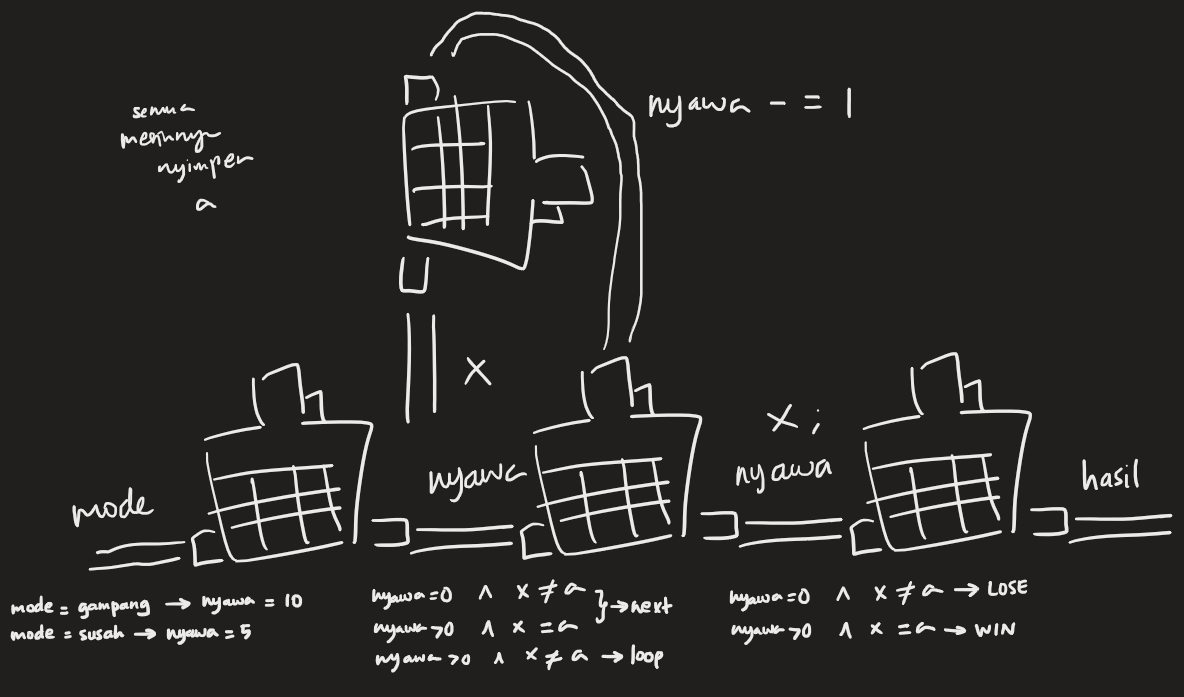 semua
mesinnya
nyimpen
a
nyawa -= 1
x
mode
nyawa
x;
nyawa
hasil
mode = gampang → nyawa = 10
mode = susah → nyawa = 5
nyawa=0 ∧ x ≠ a
nyawa>0 ∧ x = a
} → next
nyawa>0 ∧ x ≠ a → loop
nyawa=0 ∧ x ≠ a → LOSE
nyawa>0 ∧ x = a → WIN